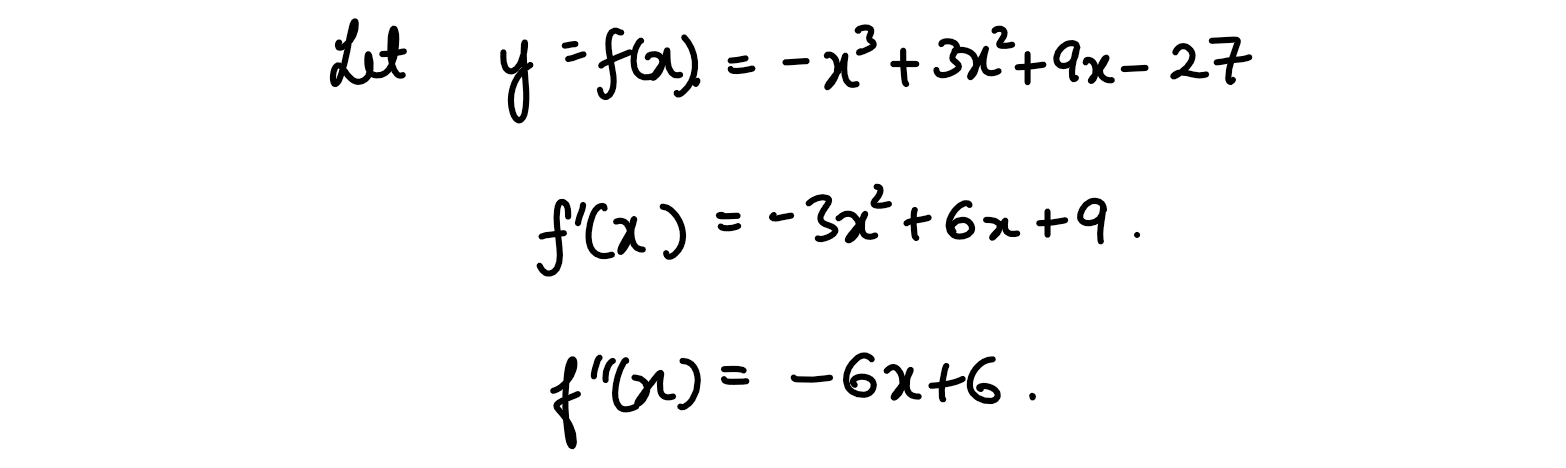 Let y = f(x) = -x³ + 3x² + 9x - 27
f'(x) = -3x² + 6x + 9.
f''(x) = -6x + 6.